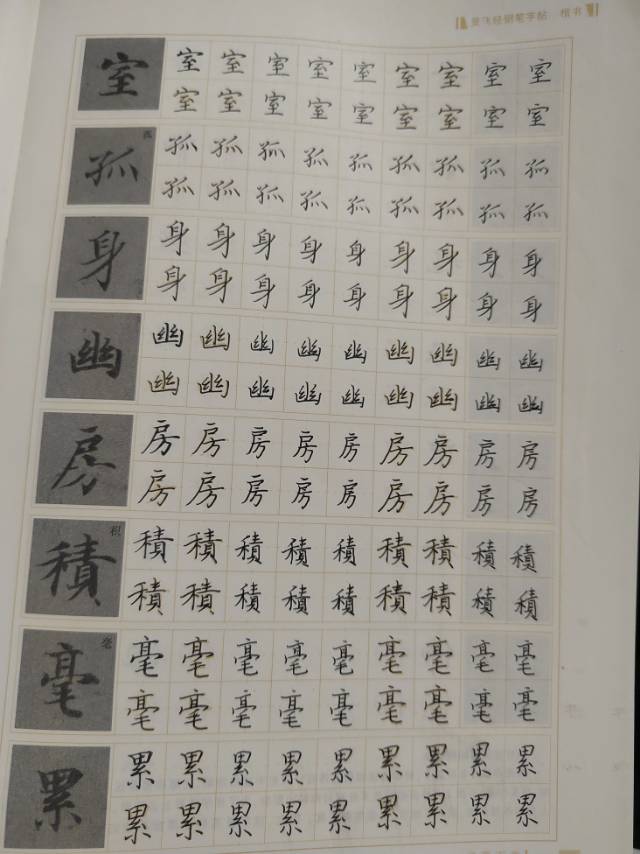 灵飞经钢笔字帖 楷书
室 室 室 室 室 室 室 室 室 室
室 室 室 室 室 室 室 室 室
孤 孤 孤 孤 孤 孤 孤 孤 孤 孤 孤
孤 孤 孤 孤 孤 孤 孤 孤 孤
身 身 身 身 身 身 身 身 身 身
身 身 身 身 身 身 身 身 身
幽 幽 幽 幽 幽 幽 幽 幽 幽 幽
幽 幽 幽 幽 幽 幽 幽 幽 幽
房 房 房 房 房 房 房 房 房 房
房 房 房 房 房 房 房 房 房
積 积 積 積 積 積 積 積 積 積 積
積 積 積 積 積 積 積 積 積
毫 毫 毫 毫 毫 毫 毫 毫 毫 毫 毫
毫 毫 毫 毫 毫 毫 毫 毫 毫
累 累 累 累 累 累 累 累 累 累
累 累 累 累 累 累 累 累 累